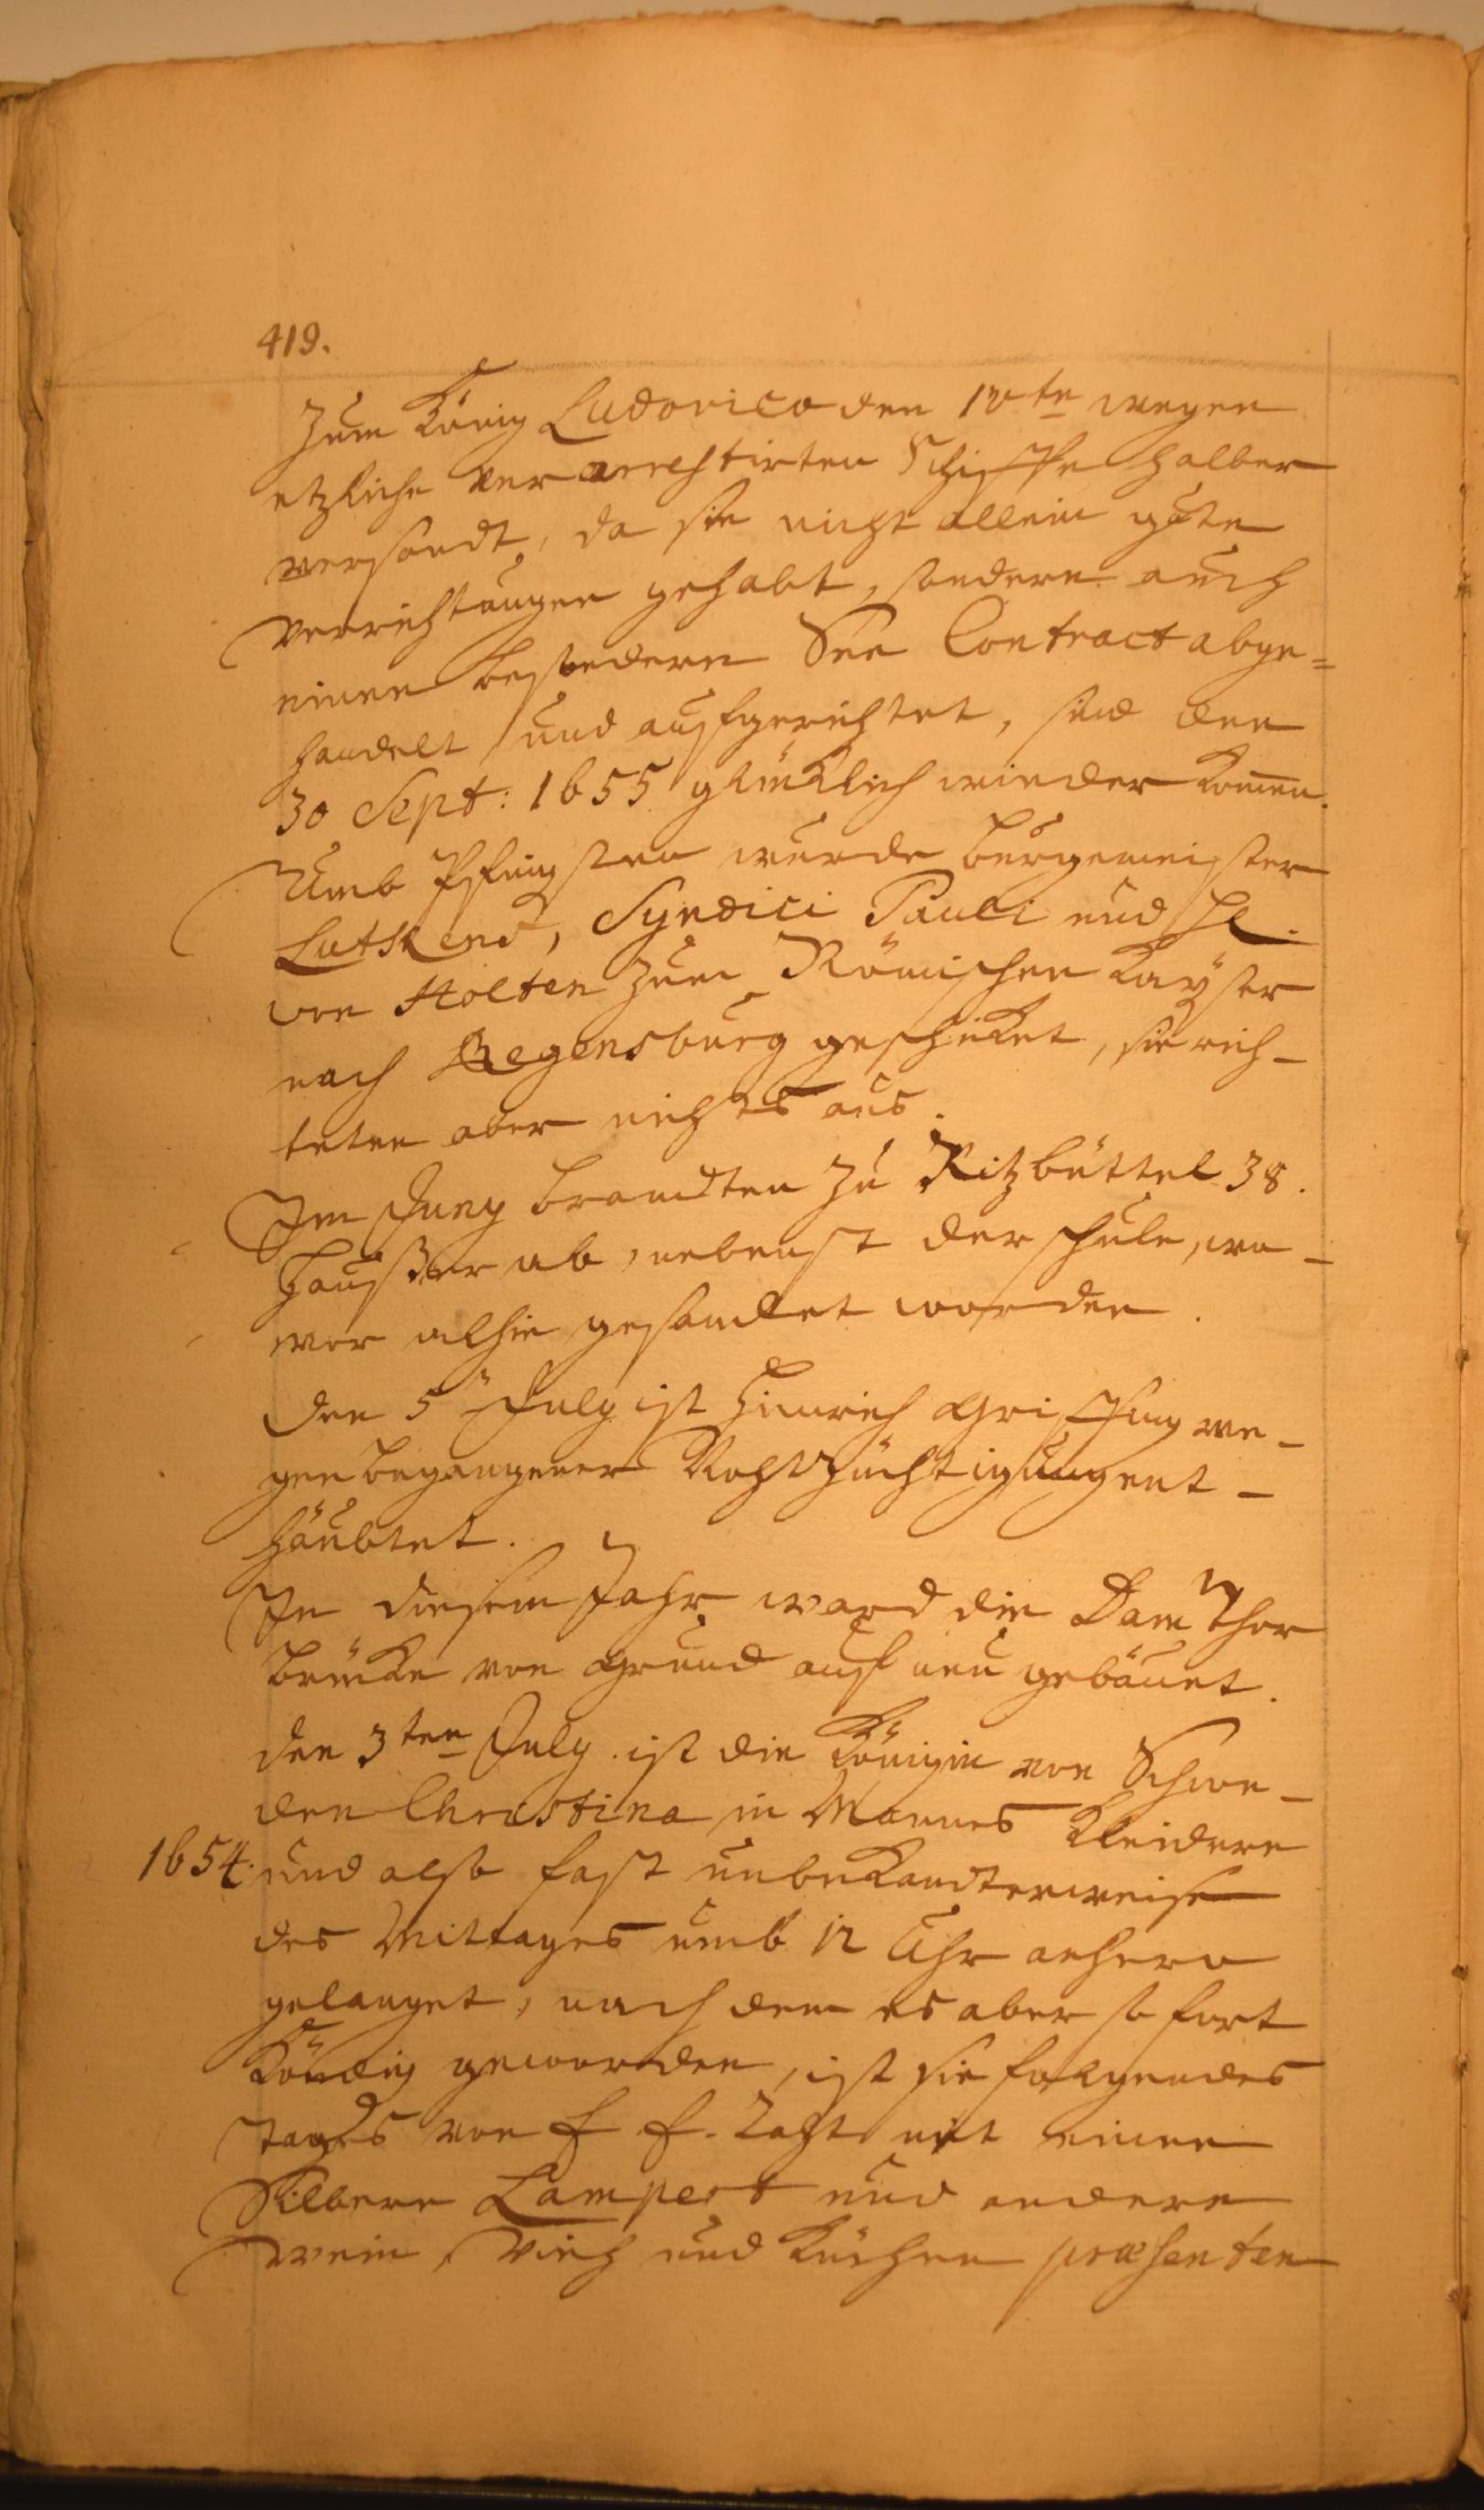 419.
Zum König Ludovico den 10ten wegen
etzliche ver arrestirten Schiffe halber
versandt, da sie nicht allein gute
verrichtungen gehabt, sondern auch
einen besondern See Contract abge=
handelt und auffgerichtet, sind den
30 Sept: 1655 glücklich wieder kom̅en.
Umb Pfingsten wurde bürgemeister
Lutkens, Syndici Pauli und H.
von Holten zum Römischen Kayser
nach Regensburg geschicket, sie rich-
teten aber nichts aus.
Im Juny brandten zu Ritzbüttel 38.
Häußer ab, nebenst der schule, wo-
vor alhie gesamlet worden.
den 5 July ist Hinrich we-
gen begangener Nohtzüchtigung ent-
häubtet.
In diesem Jahr ward die Dam Thor
brücke von grund auff neu gebauet.
den 3ten July ist die Königin von Schwe-
den Christina in Mannes Kleidern
1654. und also fast unbekandterweise
des Mittages umb 12 Uhr anhero
gelanget, nach dem es aber so fort
kündig geworden, ist sie folgendes
tages von E E. Raht mit einen
Silbern Lampet und andern
wein, Vieh und Küchen præsenten